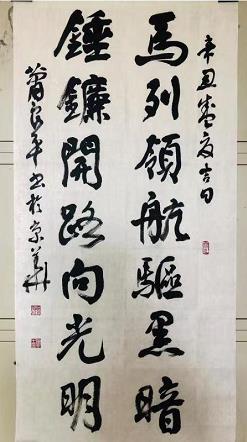 辛丑盛夏吉日
馬列領航驅黑暗
錘鐮開路向光明
蕭良平书於京華